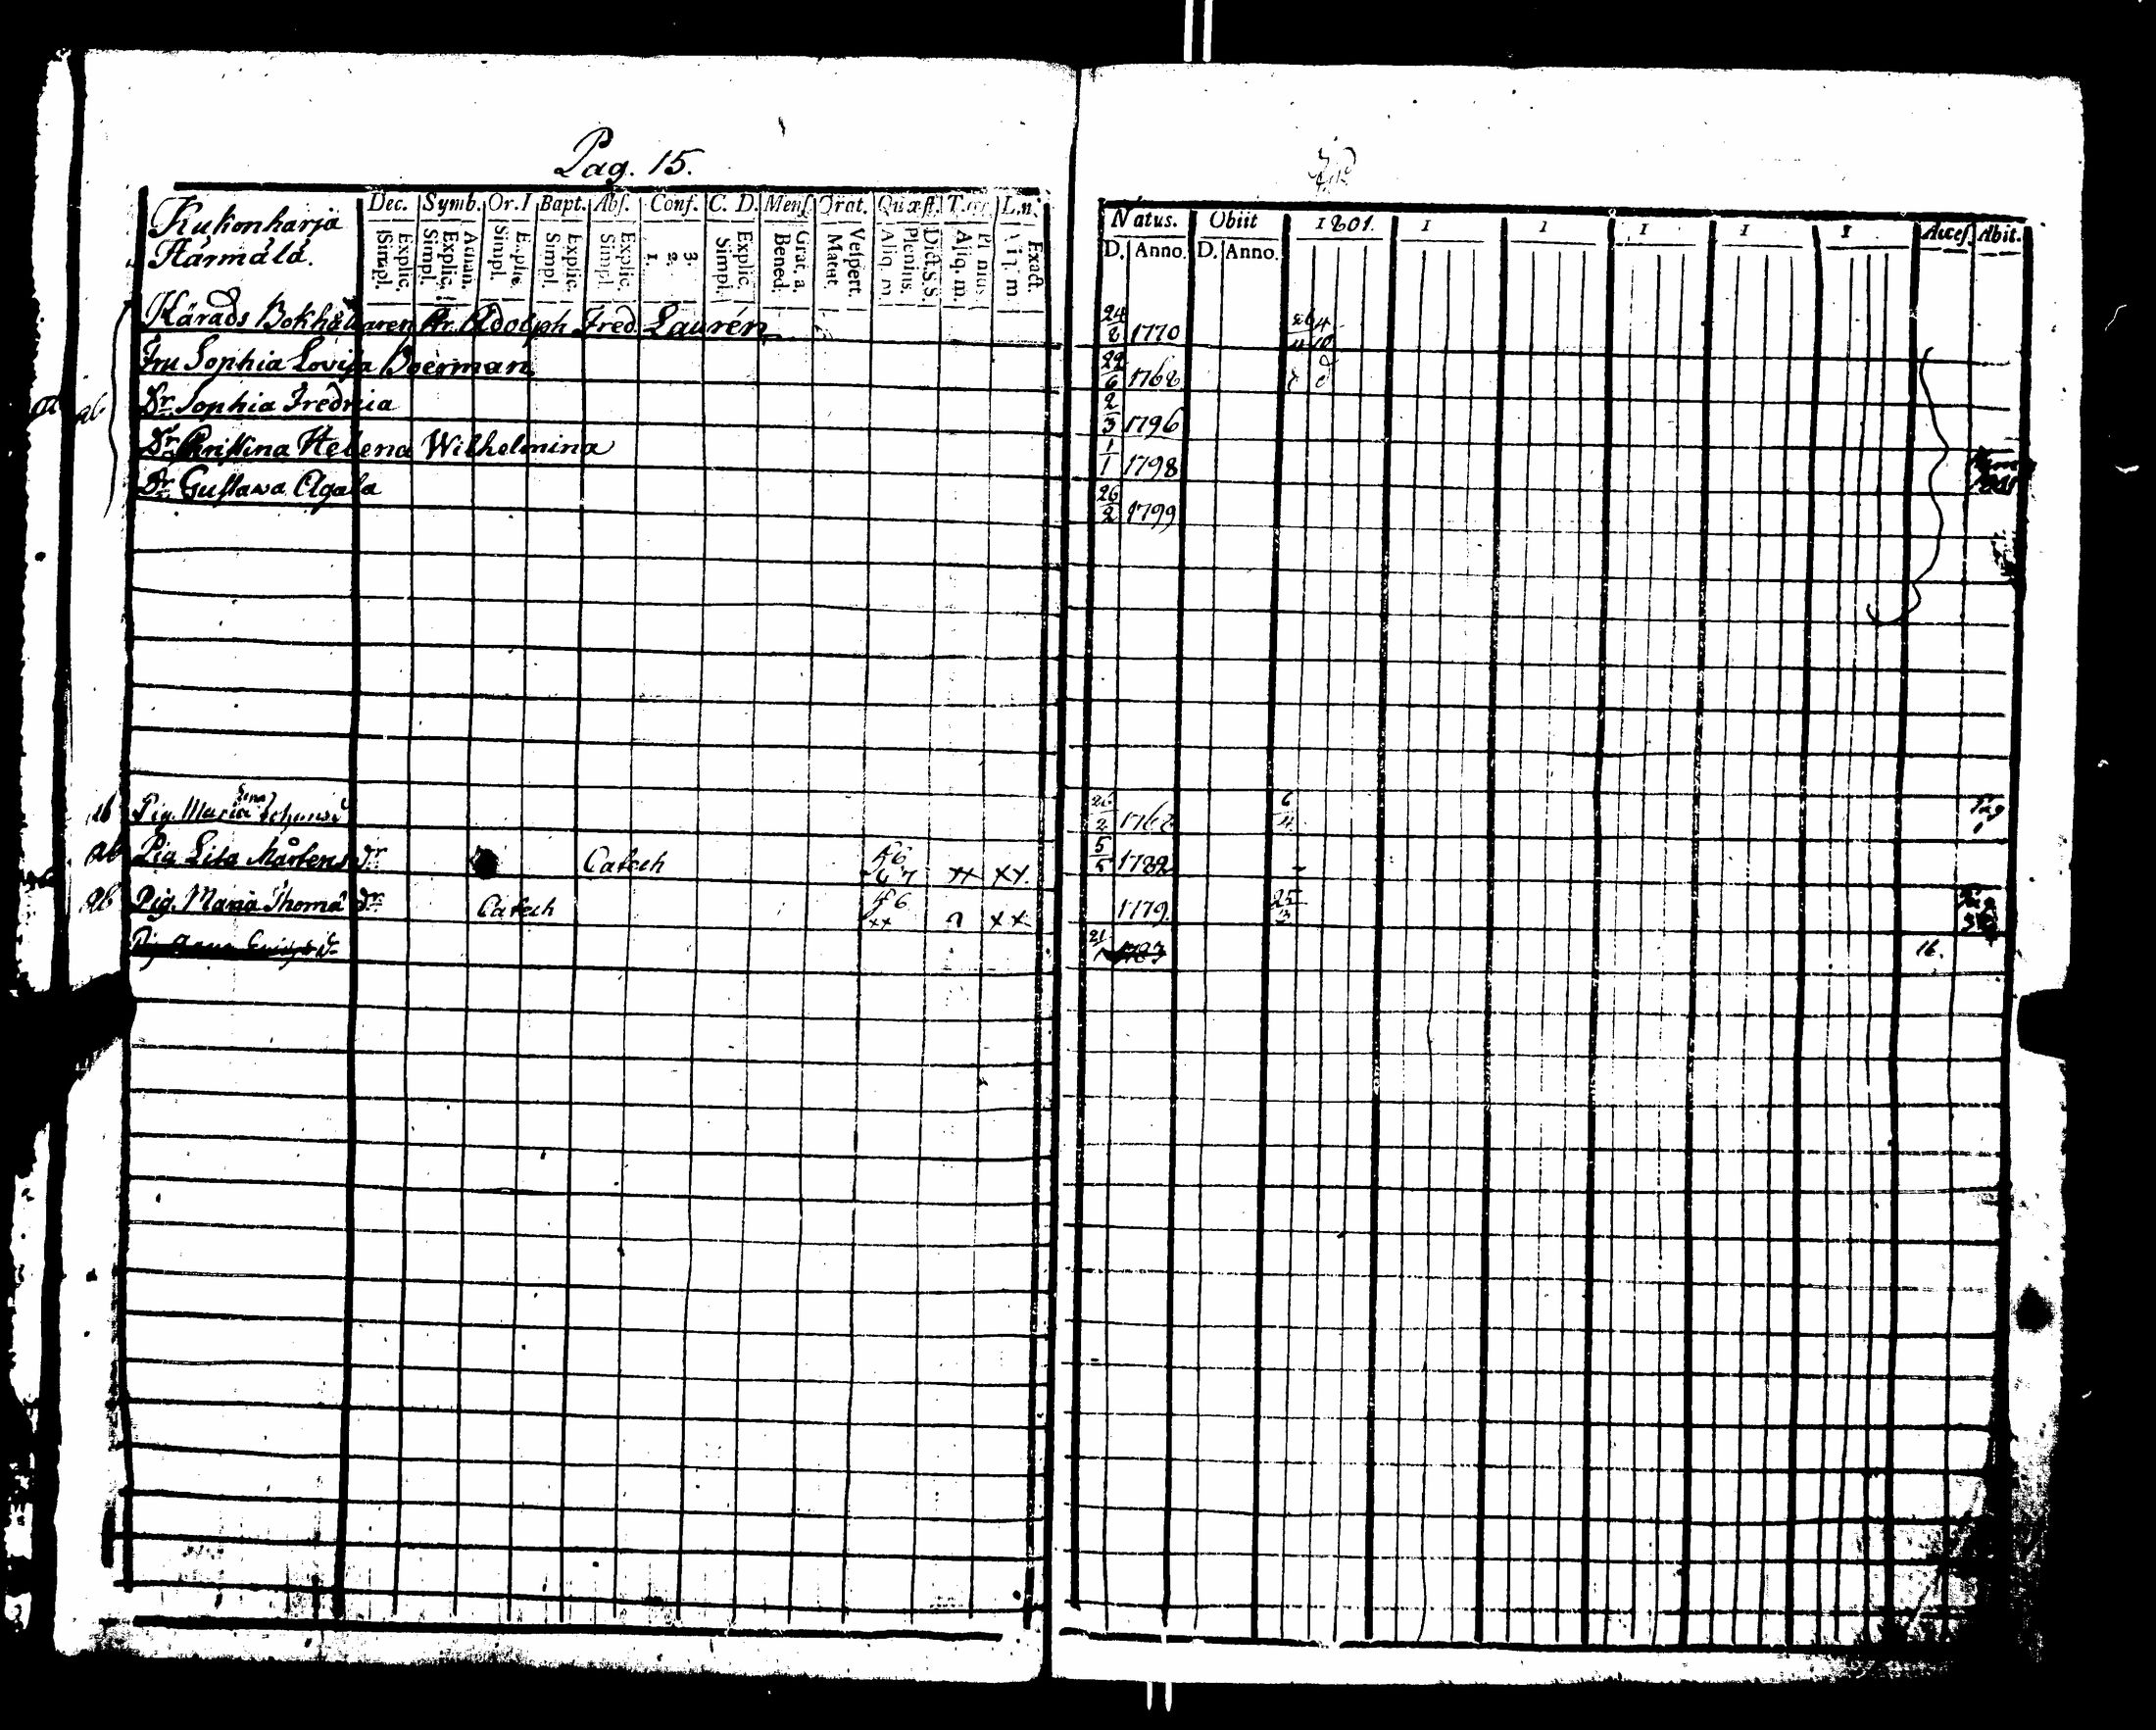 Pag. 15.
Kukonharja
Härmälä.
Dec. Symb. Or. I Bapt. Abs. Conf. C. D. Mens. Orat. Quæst. T.
Simpl. Explic. Simpl. Explic. Athan. Simpl. Explic. Simpl. Explic. Simpl. Explic. 1. 2. 3. Simpl. Explic. Bened. Grat. a. Matut. Vespert. Aliq. m. Plenius. Dict. S. S. Aliq. m. Exact.
Natus. Obiit 1801. 1 1 1 1 1 Acces. Abit.
D. Anno. D. Anno.
Härads Bokhållaren Hr. Adolph Fred. Laurén 24/2 1770
Fru Sophia Lovisa Boerman 22/6 1768
Dr. Sophia Fredrica 2/3 1796
Dr. Christina Helena Wilhelmina 1/1 1798
Dr. Gustawa Agata 26/2 1799
ab Pig. Maria 6/4
ab Pig Lisa Mårtens dr Catech xx xx. 5/5 1782
ab Pig. Maria Thomæ dr Catech xx xx 1779. 25/3
21 1783 16.